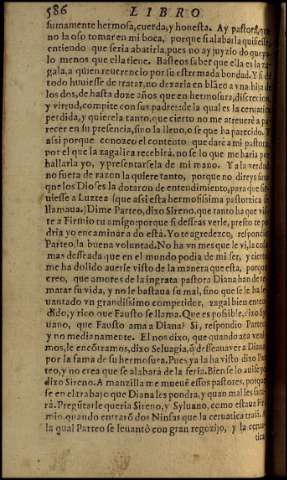 586 LIBRO
sumamente hermosa, cuerda, y honesta. Ay pastora,
no la oso tomar en mi boca, porque si alabarla quisiesse
entiendo que seria abatirla, pues no ay juyzio do quepa
lo menos que ella tiene. Basteos saber que ella es la za-
gala, a quien reuerencio por su estremada bondad. Y si
todo huuiesse de tratar, no dexaria en blãco a vna hija de
los dos, de hasta doze años que en hermosura, discrecion,
y virtud, compite con sus padres: de la qual es la ceruatica
perdida, y quierela tanto, que cierto no me atreuerè a pa-
recer en su presencia, sino la lleuo, o se que ha parecido. Y
assi porque conozco el contento que darè a mi pastora,
por el que la zagalica recebirà, no se lo que me haria por
hallarla yo, y presentarsela de mi mano. Y a la verdad
no fuera de razon la quiere tanto, porque no direys sino
que los Dioses la dotaron de entendimiento, para que
uiesse a Luztea (que assi esta hermosissima pastorcica se
llamaua.) Dime Parteo, dixo Sireno, que tanto ha que vi-
te a Firmio tu amigo: porque si desseas verle, presto te po-
dria yo encaminar a do està. Yo te agradezco, respondio
Parteo, la buena voluntad. No ha vn mes que le vi, la cosa
mas desseada que en el mundo podia de mi ser, y cierto
me ha dolido auerle visto de la manera que està, porque
creo, que amores de la ingrata pastora Diana han de re-
matar su vida, y no se bastaua su mal, sino que se le ha le-
uantado vn grandissimo competidor, zagal bien enten-
dido, y rico que Fausto se llama. Que es possible, dixo Sy-
luano, que Fausto ama a Diana? Si, respondio Parteo
y no medianamente. El nos dixo, que quando aza venia-
mos, le encõtramos, dixo Seluagia, q̃ desseaua ver a Diana
por la fama de su hermosura. Pues ya la ha visto dixo Par-
teo, y no crea que se alabarà de la feria. Bien se lo auisè yo
dixo Sireno. A manzilla me mueuẽ essos pastores, porque
se en el trabajo que Diana les pondra, y quan mal les
rà. Pregũtarle queria Sireno, y Syluano, como estaua Fir-
mio, quando entrarõ dos Ninfas que la ceruatica traiã. A
la qual Parteo se leuantò con gran regozijo, y la cerua-
tica